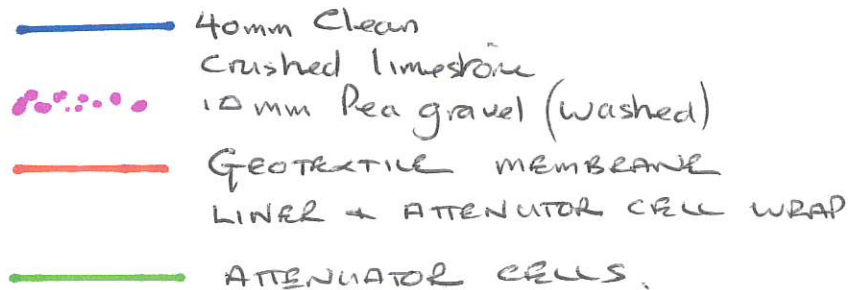 40mm Clean
Crushed limestone
10mm Pea gravel (washed)
GEOTEXTILE MEMBRANE
LINER + ATTENUTOR CELL WRAP
ATTENUATOR CELLS.